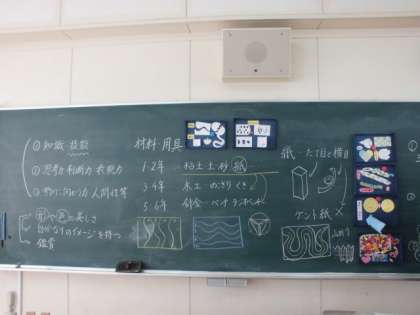 ① 知識 技能
② 思考力 判断力 表現力
③ 学びに向かう力 人間性等
形や色の美しさ
自分なりのイメージを持つ
鑑賞
材料・用具
1・2年 粘土 土 砂 紙
3・4年 木 土 のこぎり くぎ
5・6年 針金 ペンチ
紙 たて目と横目
ケント紙 ×
①
②